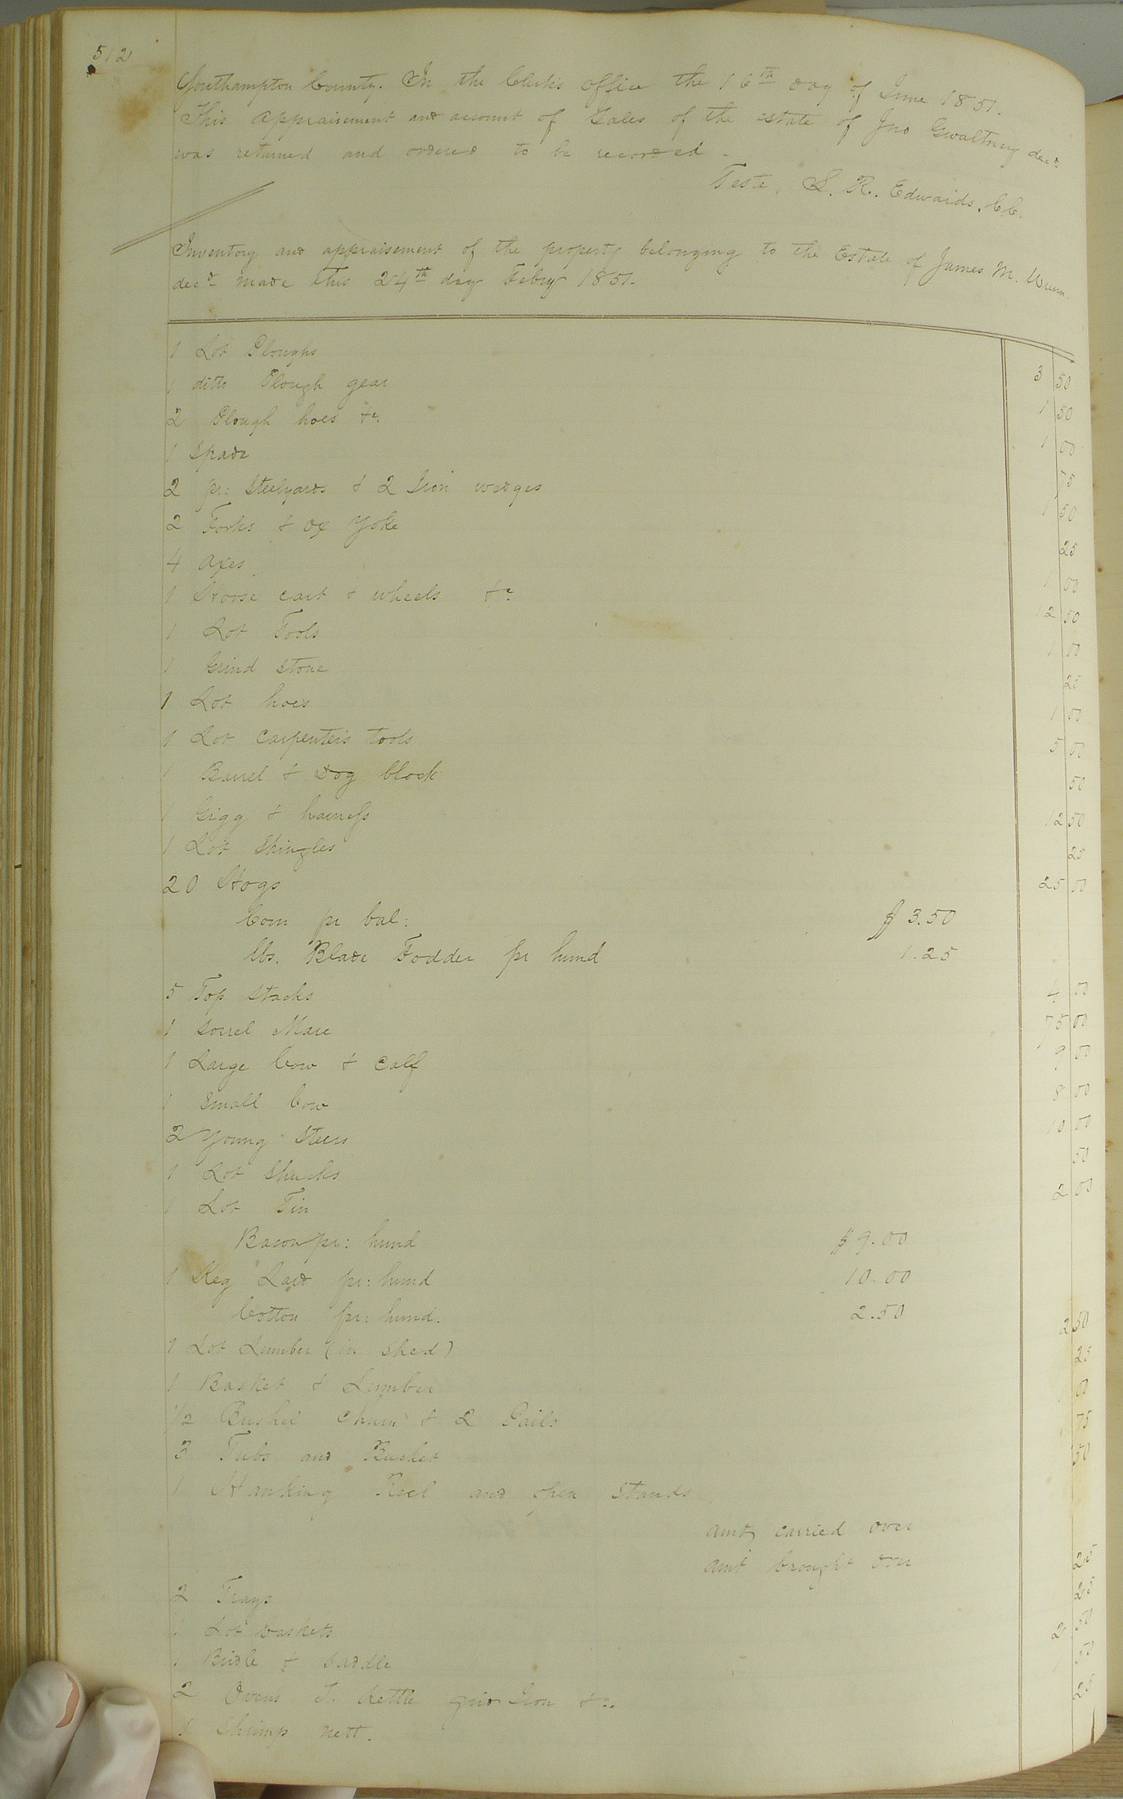 512
Southampton County. In the Clerk's office the 16th day of June 1851.
This appraisement and account of Sales of the estate of Jno Gwaltney decd.
was returned and ordered to be recorded.
Teste, L. R. Edwards, CC.
Inventory and appraisement of the property belonging to the Estate of James M.
decd. made this 24th day Feby 1851.
1 Lot Ploughs 3 50
1 ditto Plough gear 1 50
2 Plough hoes &c. 1 00
1 Spade 75
2 pr: Steelyards & 2 Iron wedges 1 50
2 Forks & ox Yoke 25
4 axes 1 00
1 Horse cart & wheels &c 12 50
1 Lot Tools 1 00
1 Grind stone 25
1 Lot hoes 1 00
1 Lot carpenters tools 5 00
1 Barrel & Dog block 50
1 Gigg & harness 12 50
1 Lot Shingles 25
20 Hogs 25 00
Corn pr bal: $ 3.50
lbs. Blade Fodder pr hund 1.25
5 Top Stacks 4 00
1 Sorrel Mare 75 00
1 Large Cow & calf 9 00
1 Small Cow 8 00
2 Young Steers 10 00
1 Lot Shucks 50
1 Lot Tin 2 00
Bacon pr: hund $ 9.00
1 Keg Lard pr: hund 10.00
Cotton pr: hund. 2.50
1 Lot Lumber (in shed) 2 50
1 Basket & Lumber 25
1/2 Bushel churn & 2 Pails 50
3 Tubs and Bucket 75
1 Hanking Reel and stands 50
amt carried over
amt brought over
2 Trays 25
1 Lot baskets 25
1 Bridle & Saddle 2 50
2 Ovens T. Kettle grid Iron &c. 50
1 Shrimp nett. 25